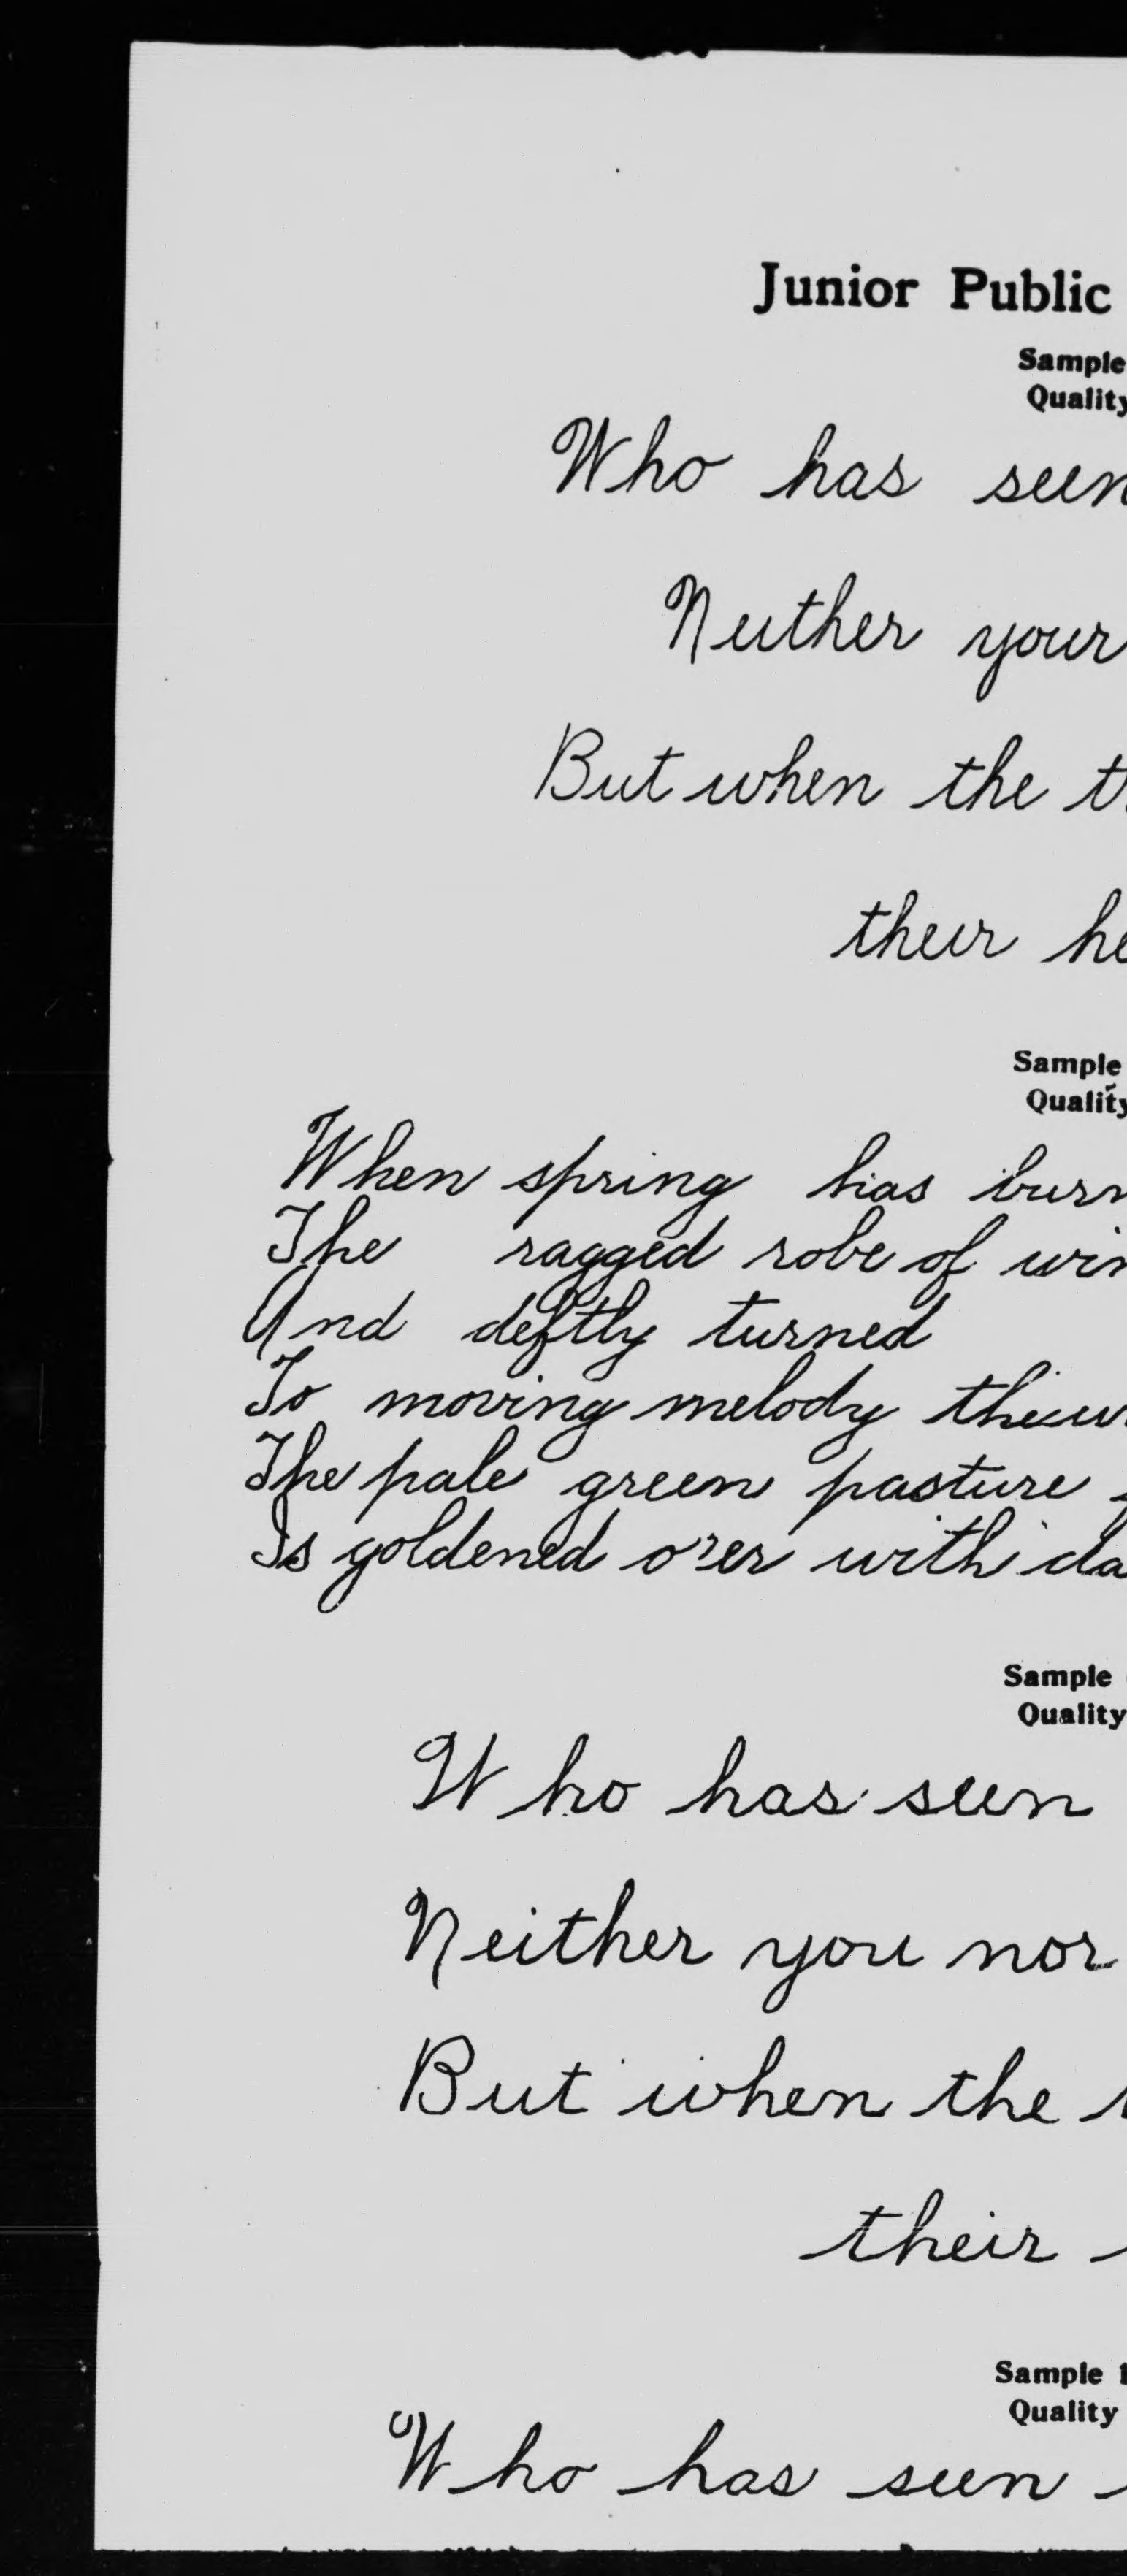 Junior Public
Sample
Quality
Who has seen
Neither your
But when the
their
Sample
Quality
When spring has burn
The ragged robe of win
And deftly turned
To moving melody
The pale green pasture
Is goldened o'er with da
Sample
Quality
Who has seen
Neither you nor
But when the
their
Sample
Quality
Who has seen